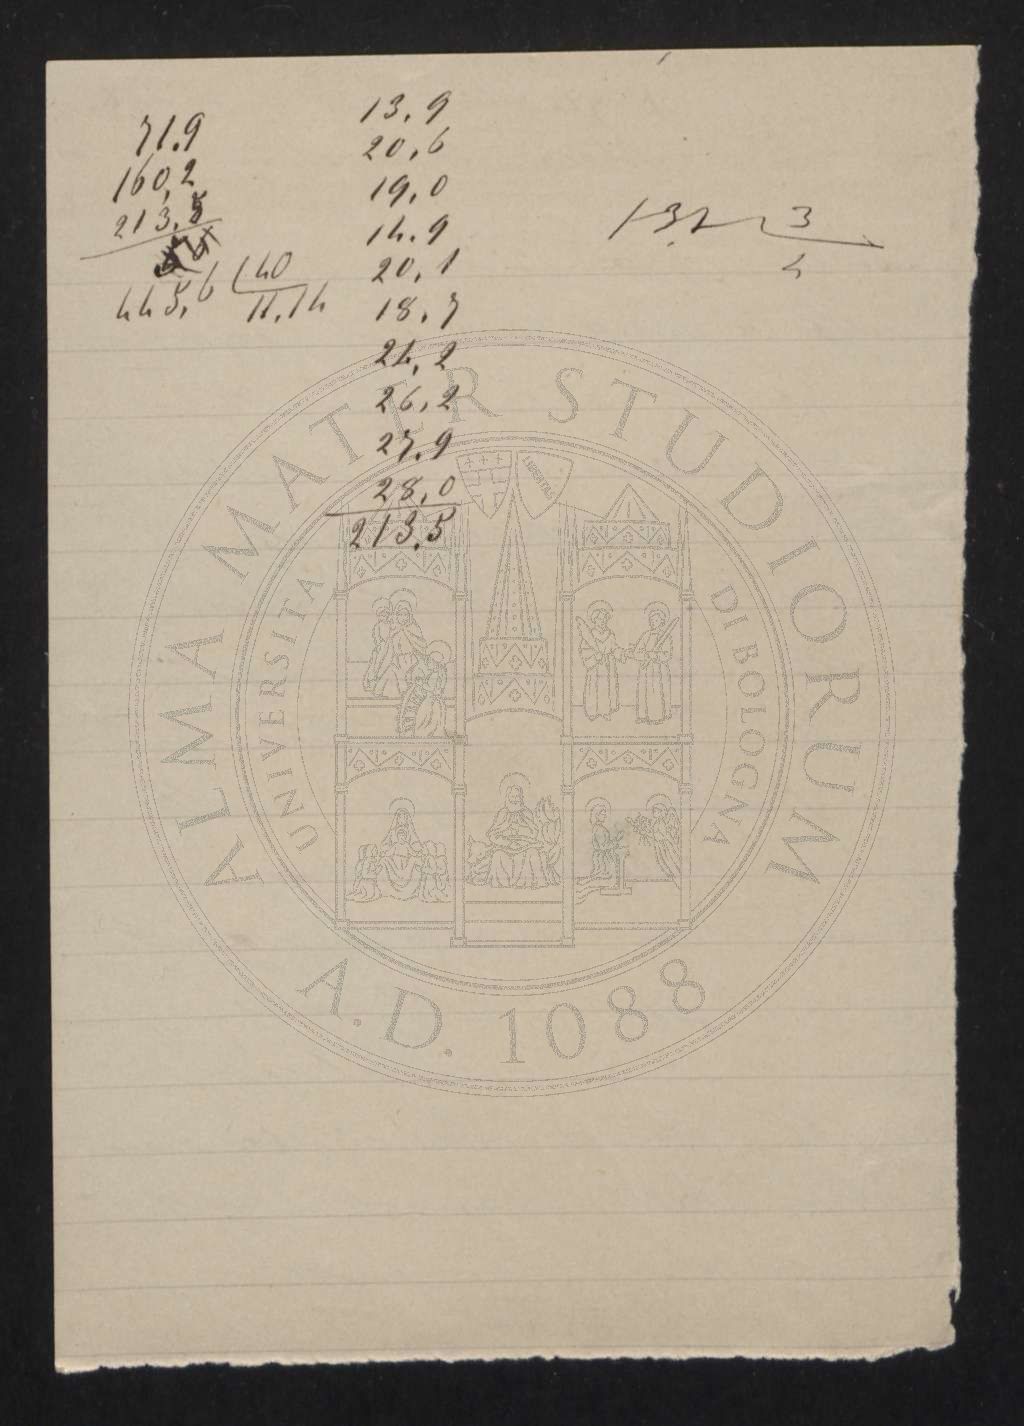 71.9
160,2
213,5
445,6 40
11,14
13,9
20,6
19,0
14,9
20,1
18,7
24,2
26,2
27,9
28,0
213,5
3
4
ALMA MATER STUDIORUM
A.D. 1088
UNIVERSITA DI BOLOGNA
LIBERTAS